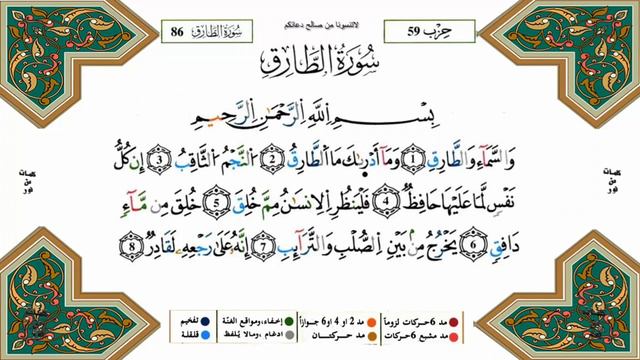 حِزْب 59
لاتنسونا من صالح دعائكم
سُورَةُ الطَّارِق 86
سُورَةُ الطَّارِقِ
بِسْمِ اللَّهِ الرَّحْمَٰنِ الرَّحِيمِ
وَالسَّمَآءِ وَالطَّارِقِ (1) وَمَآ أَدْرَىٰكَ مَا الطَّارِقُ (2) النَّجْمُ الثَّاقِبُ (3) إِن كُلُّ
نَفْسٍ لَّمَا عَلَيْهَا حَافِظٌ (4) فَلْيَنظُرِ الْإِنسَانُ مِمَّ خُلِقَ (5) خُلِقَ مِن مَّآءٍ
دَافِقٍ (6) يَخْرُجُ مِنۢ بَيْنِ الصُّلْبِ وَالتَّرَآئِبِ (7) إِنَّهُ عَلَىٰ رَجْعِهِ لَقَادِرٌ (8)
كلمات
من
نور
كلمات
من
نور
مد 6 حركات لزوماً مد 2 او 4 او 6 جوازاً إخفاء، ومواقع الغنّة تفخيم
مد مشبع 6 حركات مد حركتان ادغام، ومالا يُلفظ قلقلة